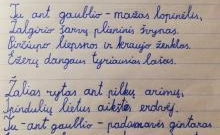 Tu ant gaublio - mažas kopinėlis,
Žalgirio žarvų plieninis žvynas.
Pirčiupio liepsnos ir kraujo ženklas.
Ežerų dangaus tyriausias lašas.
Žalias rytas ant pilkų arimų,
Spindulių lietus aikštėj erdvėj.
Tu - ant gaublio - padavimais gintaras